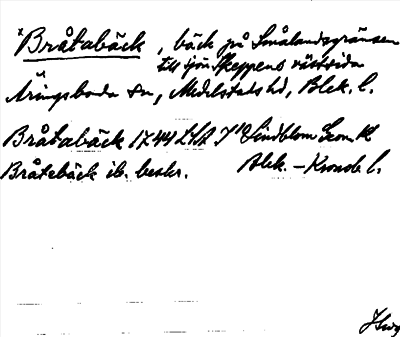 x Bråtabäck, bäck på Smålandsgränsen
till sjön Skeppens västsida
Åryngsboda sn, Medelstads hd, Blek. l.
Bråtabäck 1744 LSA Lindblom Geom. K
Bråtebäck ib. beskr. Blek. – Kronob. l.